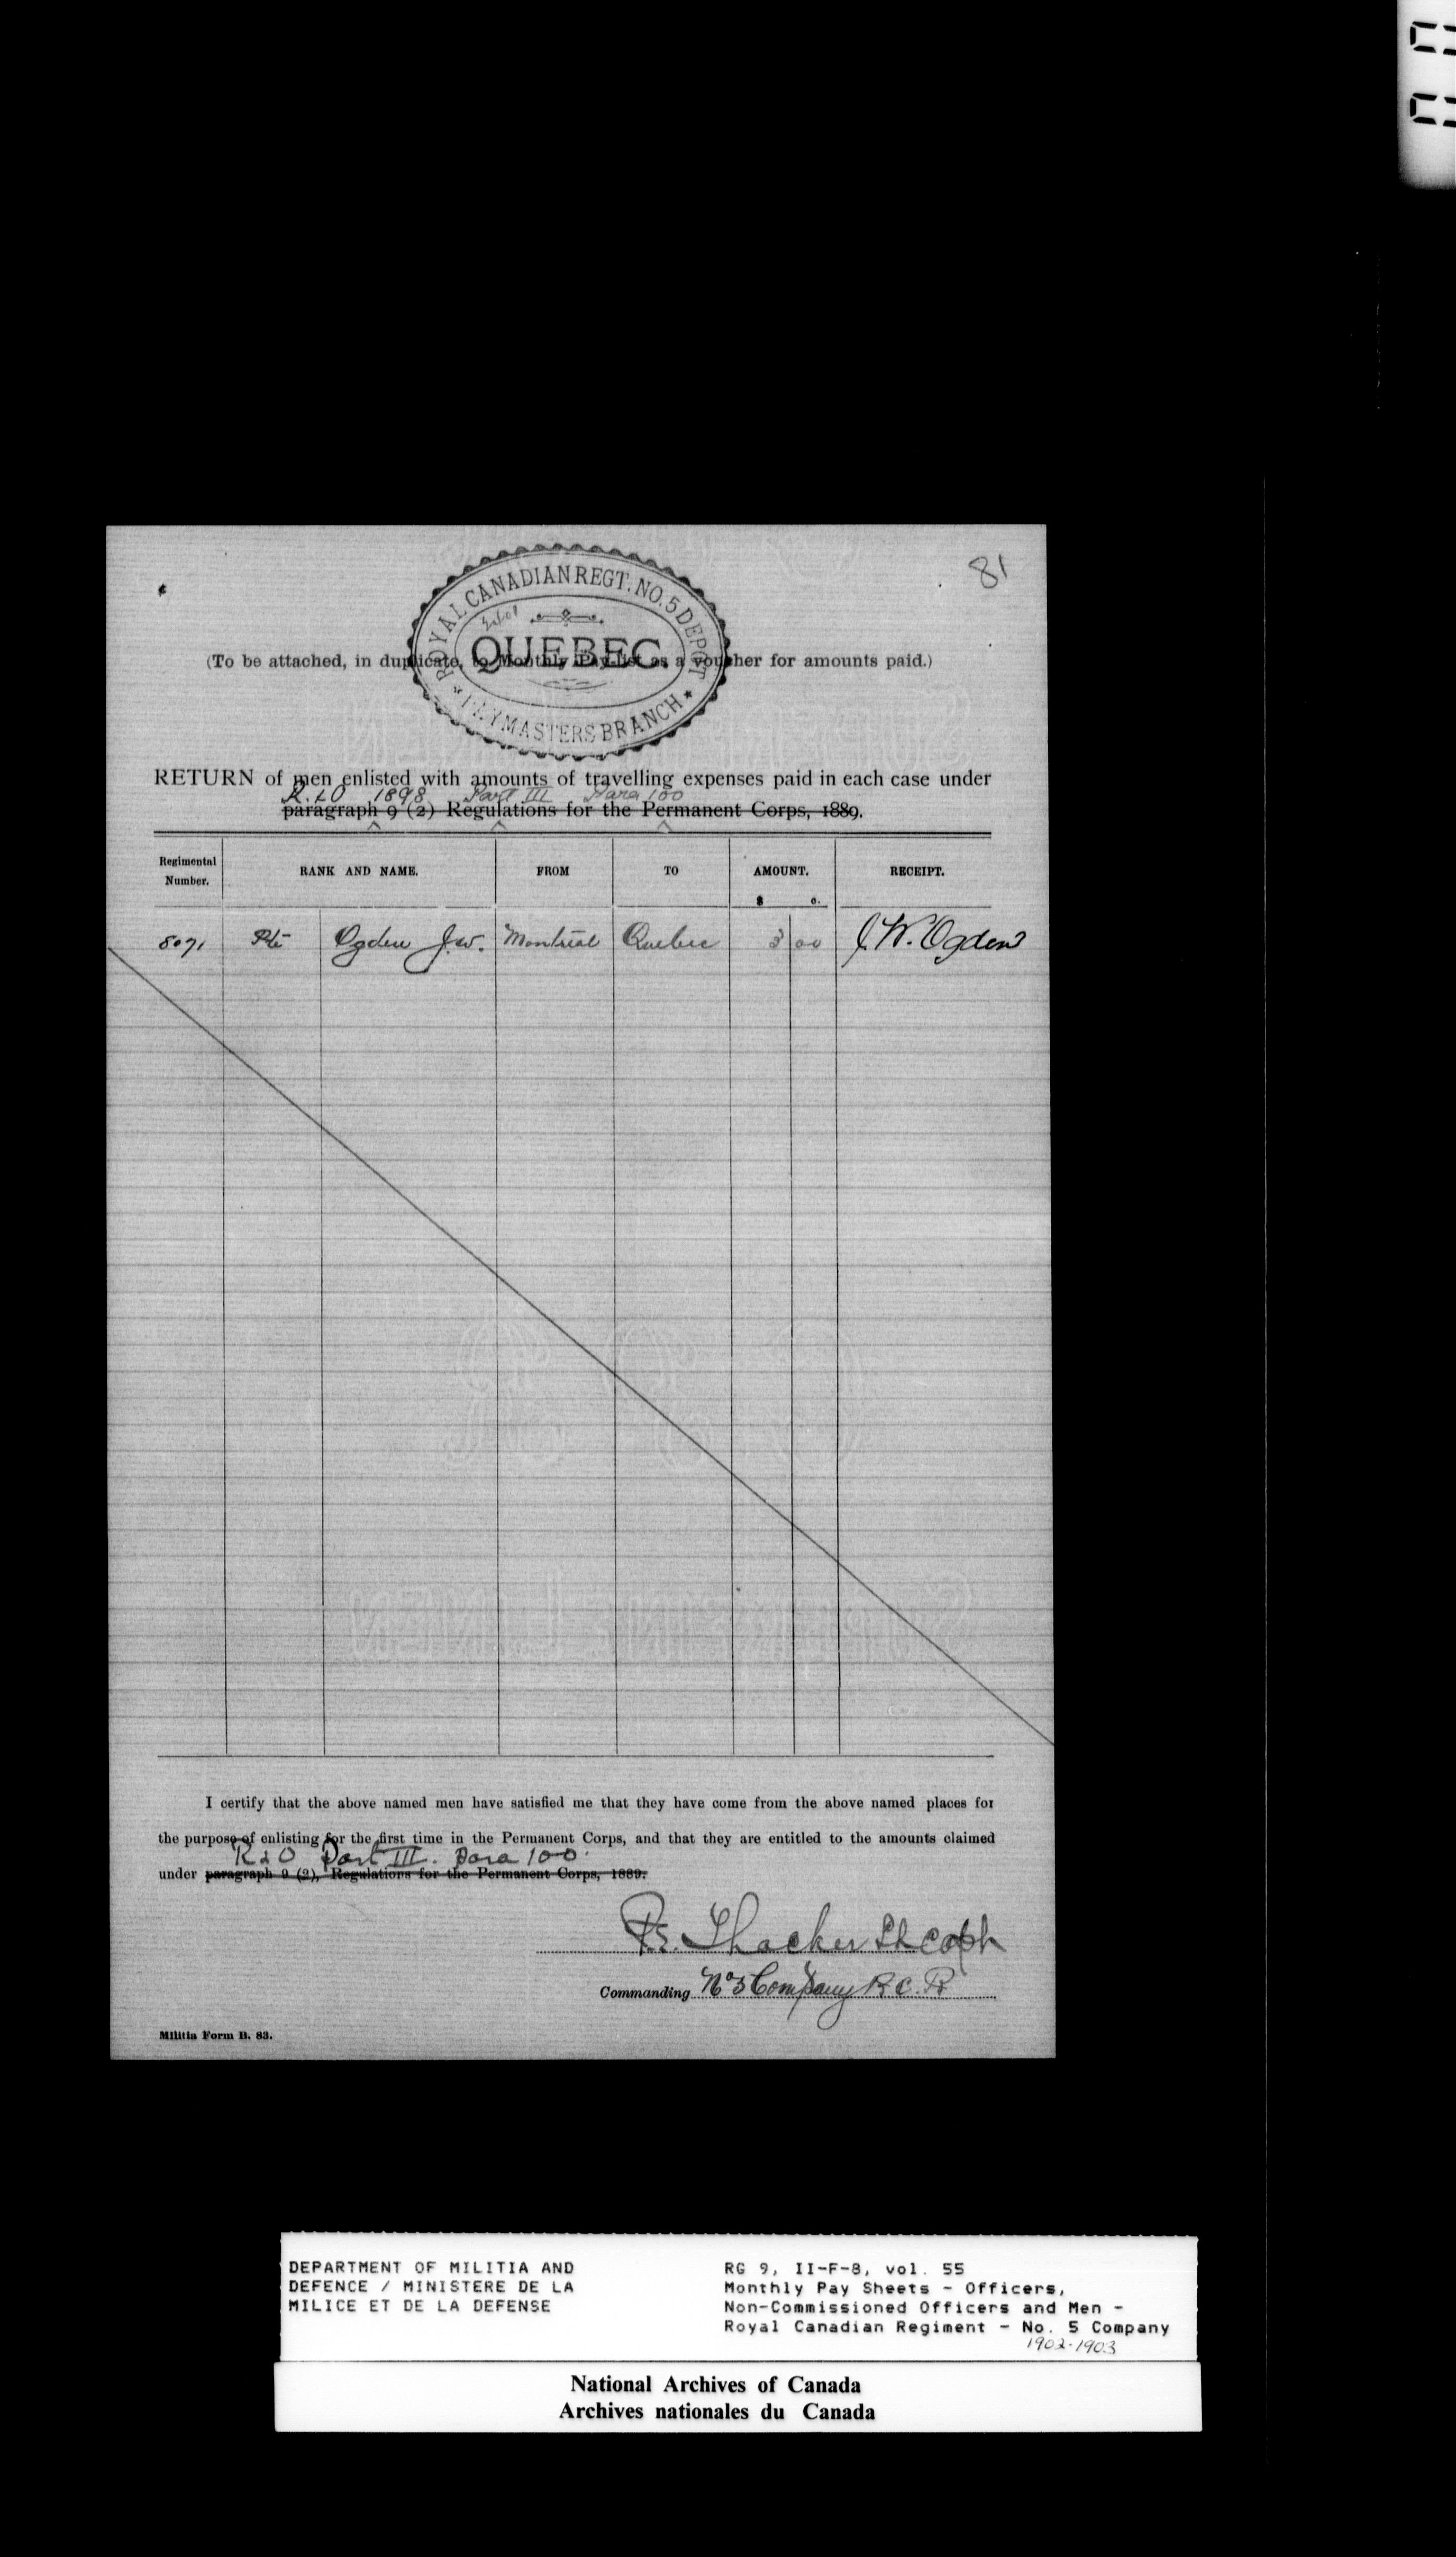 81
ROYAL CANADIAN REGT. NO. 5 DEPOT
QUEBEC.
PAYMASTERS BRANCH
(To be attached, in duplicate, to Monthly Pay-list as a voucher for amounts paid.)
RETURN of men enlisted with amounts of travelling expenses paid in each case under
R. & O 1898 Part III Para 100
paragraph 9 (2) Regulations for the Permanent Corps, 1889.
Regimental Number. RANK AND NAME. FROM TO AMOUNT. RECEIPT.
$ c.
8071 Pte Ogden J.W. Montreal Quebec 3 00 J.W. Ogden
I certify that the above named men have satisfied me that they have come from the above named places for
the purpose of enlisting for the first time in the Permanent Corps, and that they are entitled to the amounts claimed
R & O Part III. Para 100.
under paragraph 9 (2), Regulations for the Permanent Corps, 1889.
Thacker Lt Capt
Commanding No 5 Company R. C. R
Militia Form B. 83.
DEPARTMENT OF MILITIA AND
DEFENCE / MINISTERE DE LA
MILICE ET DE LA DEFENSE
RG 9, II-F-8, vol. 55
Monthly Pay Sheets - Officers,
Non-Commissioned Officers and Men -
Royal Canadian Regiment - No. 5 Company
1902-1903
National Archives of Canada
Archives nationales du Canada